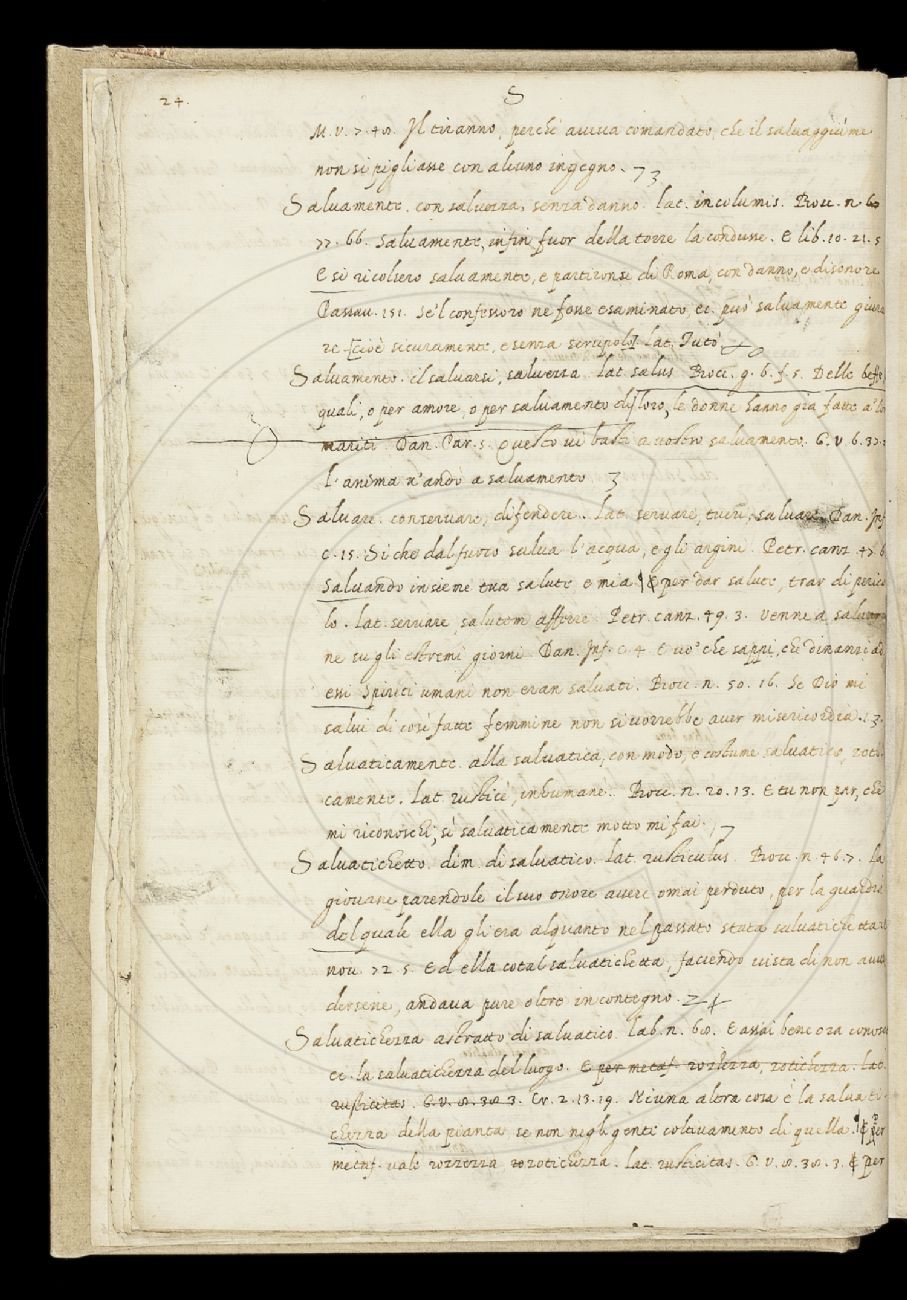 24.
S
M. V. 7. 48. Il tiranno, perche aueua comandato, che il saluaggiume
non si pigliasse con alcuno ingegno.
Saluamente. con saluezza, senza danno. lat. incolumis. Bocc. n. 60
77. 66. Saluamente, infin, fuor della torre la condusse. E lib. 10. 21. 5
E si ricolsero saluamente, e partironsi di Roma, con danno, e disonore
Passau. 151. Se'l confessoro ne fosse esaminato, ec. può saluamente giura
re [cioè sicuramente, e senza scrupolo] lat. Tutò
Saluamento. il saluarsi, saluezza. lat. salus Bocc. g. 6. f. 5. Delle beffe,
quali, o per amore, o per saluamento di loro, le donne hanno già fatte a' lo
mariti. Dan. Par. 5. Questo ui basti a uostro saluamento. G. V. 6. 37.
l'anima n'andò a saluamento
Saluare. conseruare, difendere. lat. seruare, tueri, saluare. Dan. Inf
c. 15. Si che dal fuoco salua l'acqua, e gli argini. Petr. canz. 47. 6
Saluando insieme tua salute e mia. ¶ E per dar salute, trar di perico
lo. lat. seruare, salutem afferre Petr. canz. 49. 3. Venne a saluar
ne su gli estremi giorni Dan. Inf. c. 4. E uo' che sappi, che dinanzi ad
essi Spiriti umani non eran saluati. Bocc. n. 50. 16. Se Dio mi
salui di così fatte femmine non si uorrebbe auer misericordia.
Saluaticamente. alla saluatica, con modo, e costume saluatico, roti
camente. lat. rusticè, inhumanè. Bocc. n. 20. 13. E tu non par, che
mi riconoschi, sì saluaticamente motto mi fai.
Saluatichetto. dim. di saluatico. lat. rusticulus. Bocc. n. 46. 7. La
giouane parendole il suo onore auere omai perduto, per la guardia
del quale ella gli era alquanto nel passato stata saluatichetta.
nou. 72. 5. Ed ella cotal saluatichetta, faccendo uista di non auue
dersene, andaua pure oltre in contegno.
Saluatichezza astratto di saluatico. Lab. n. 68. E assai bene ora conosco
ec. la saluatichezza del luogo. E per metaf. rozzezza, rotichezza. lat.
rusticitas. G. V. 8. 38. 3. Cr. 2. 13. 19. Niuna altra cosa è la saluati
chezza della pianta, se non negligente coltiuamento di quella. ¶ E per
metaf. uale rozzezza rotichezza. lat. rusticitas. G. V. 8. 38. 3. ¶ per